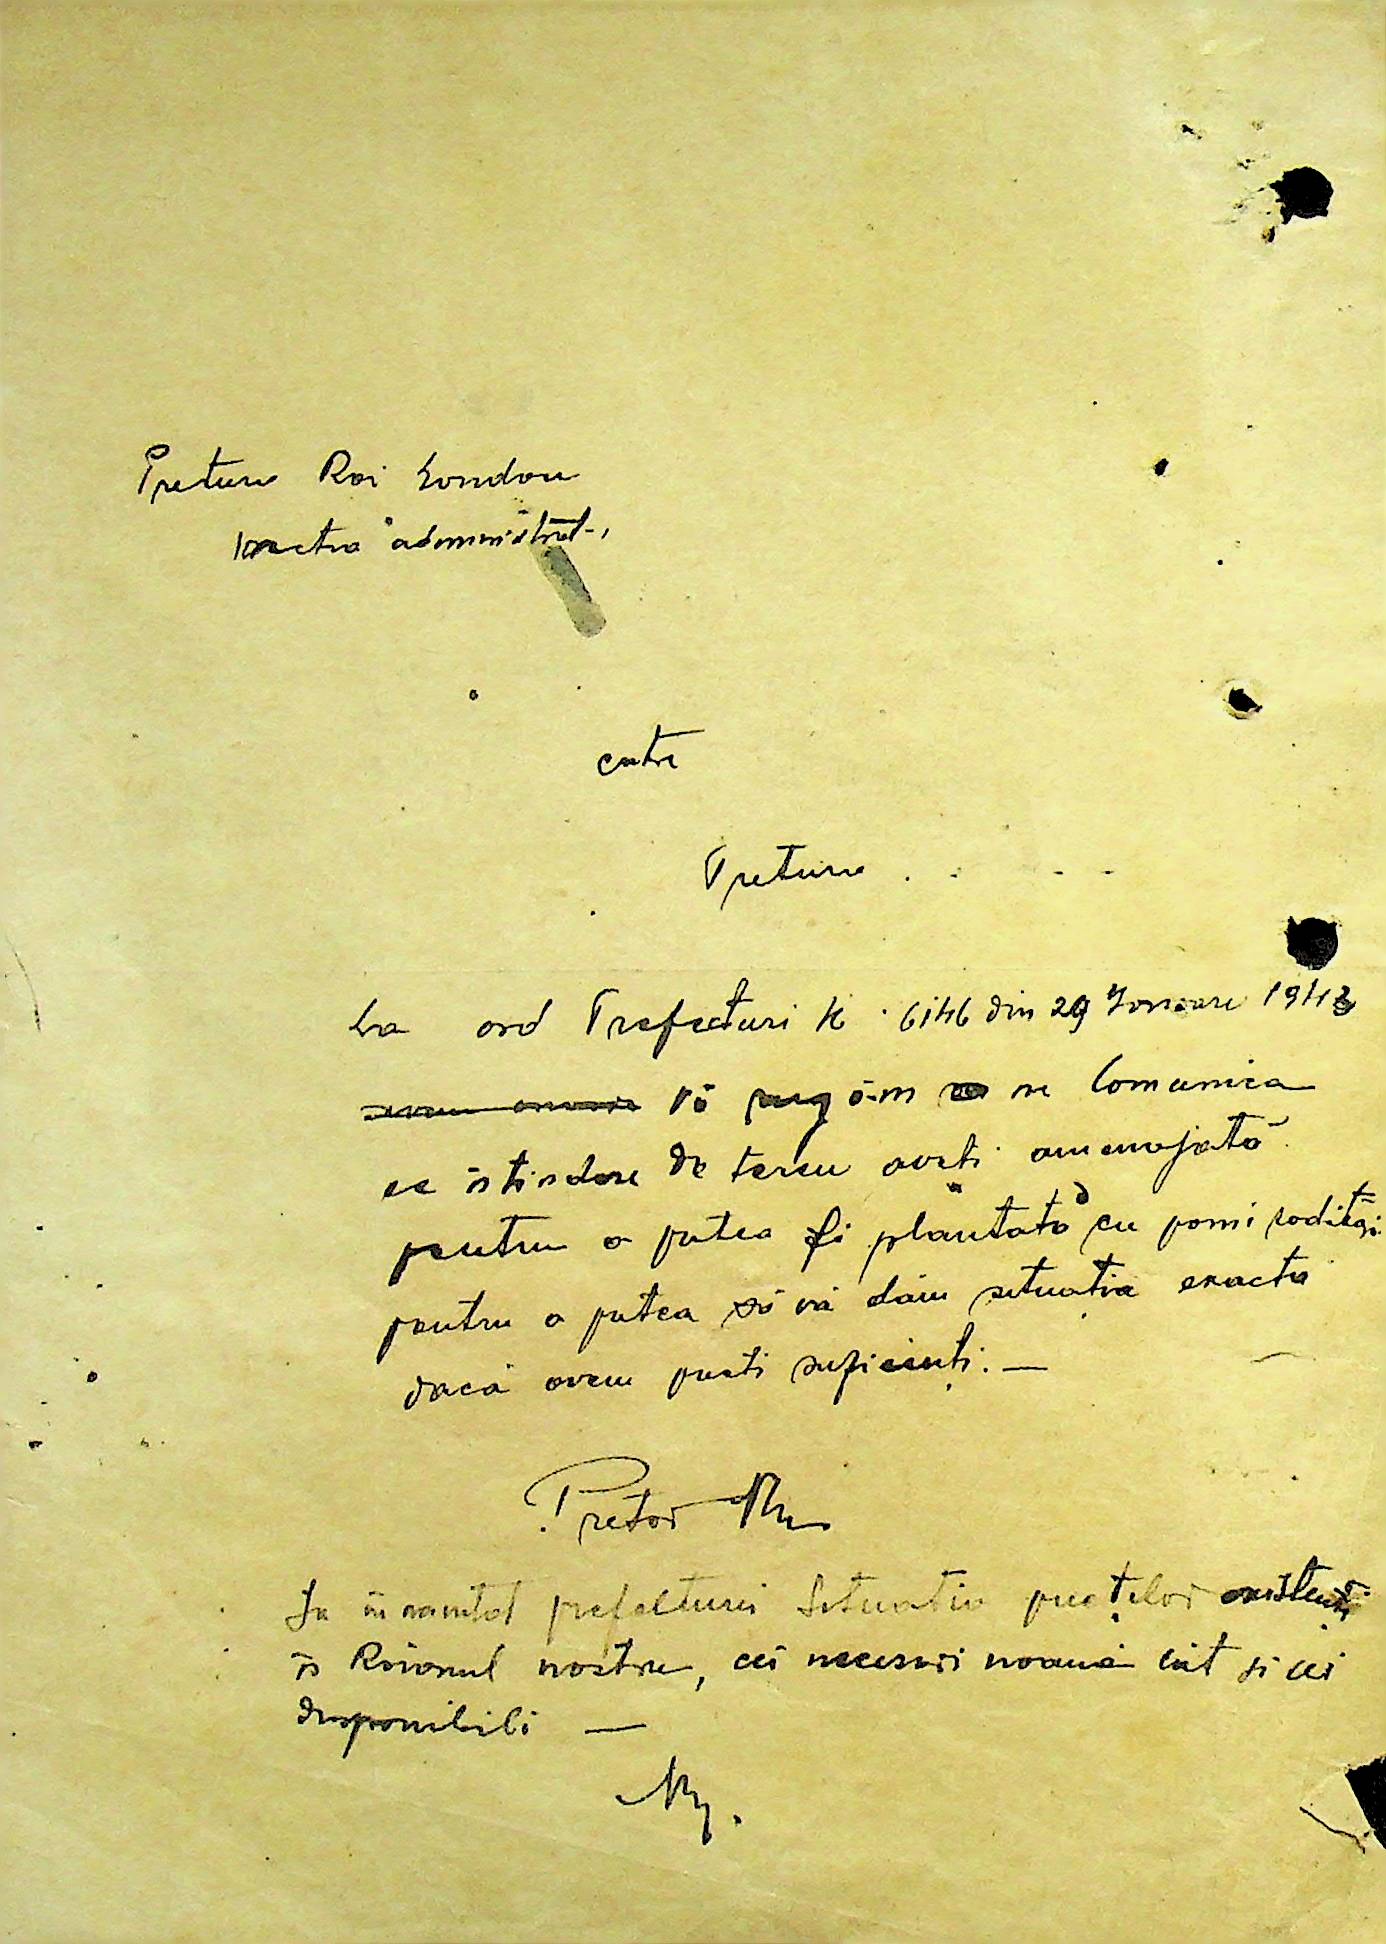 Pretura Rai Landau
administrat-,
catre
Pretura . . . .
La ord Prefecturi № 6146 din 29 Ianuarie 1943
vă rugăm ne Comunica
ce întindere de teren aveti amenajată
pentru a putea fi plantată cu pomi roditori
pentru a putea să vă dăm situatia exacta
dacă avem pueti suficienți. —
Pretor
Sa înnaintat prefecturii Situatia pueților existenti
în Raionul nostru, cei necesari nouă cât si cei
disponibili —